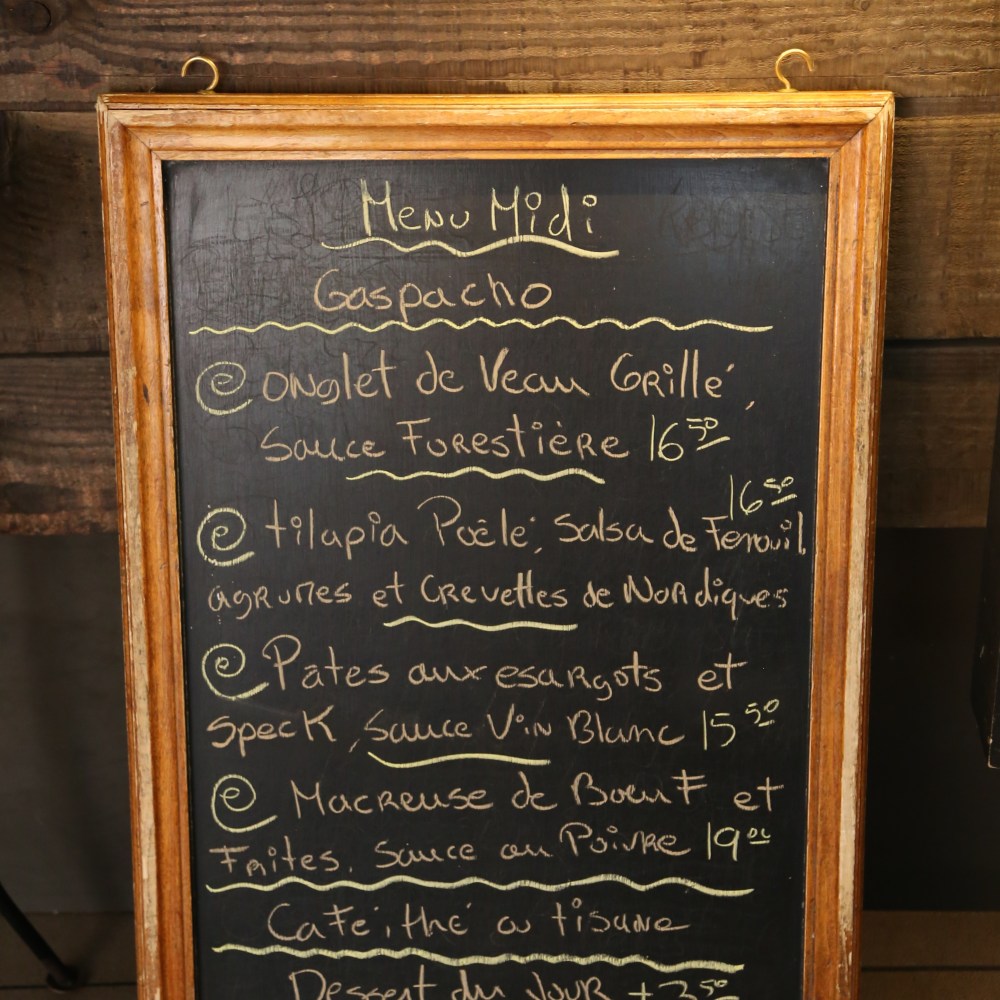 Menu Midi
Gaspacho
onglet de Veau Grillé,
Sauce Forestière 16 50
16 50
tilapia Poêlé, Salsa de Fenouil,
agrumes et Crevettes de Nordiques
Pâtes aux esargots et
Speck, Sauce Vin Blanc 15 50
Macreuse de Boeuf et
Frites, Sauce au Poivre 19 00
Café, thé ou tisane
Dessert du Jour + 3 50